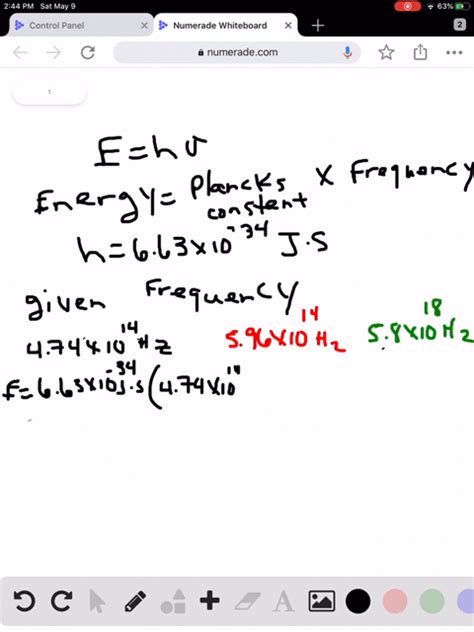 2:44 PM Sat May 9 63%
Control Panel × Numerade Whiteboard × + 2
numerade.com
1
E=hυ
Energy= Plancks constant × Frequency
h=6.63×10^-34 J·S
given Frequency
4.74×10^14 Hz 5.96×10^14 Hz 5.8×10^18 Hz
E=6.63×10^-34 J·s(4.74×10^14
A